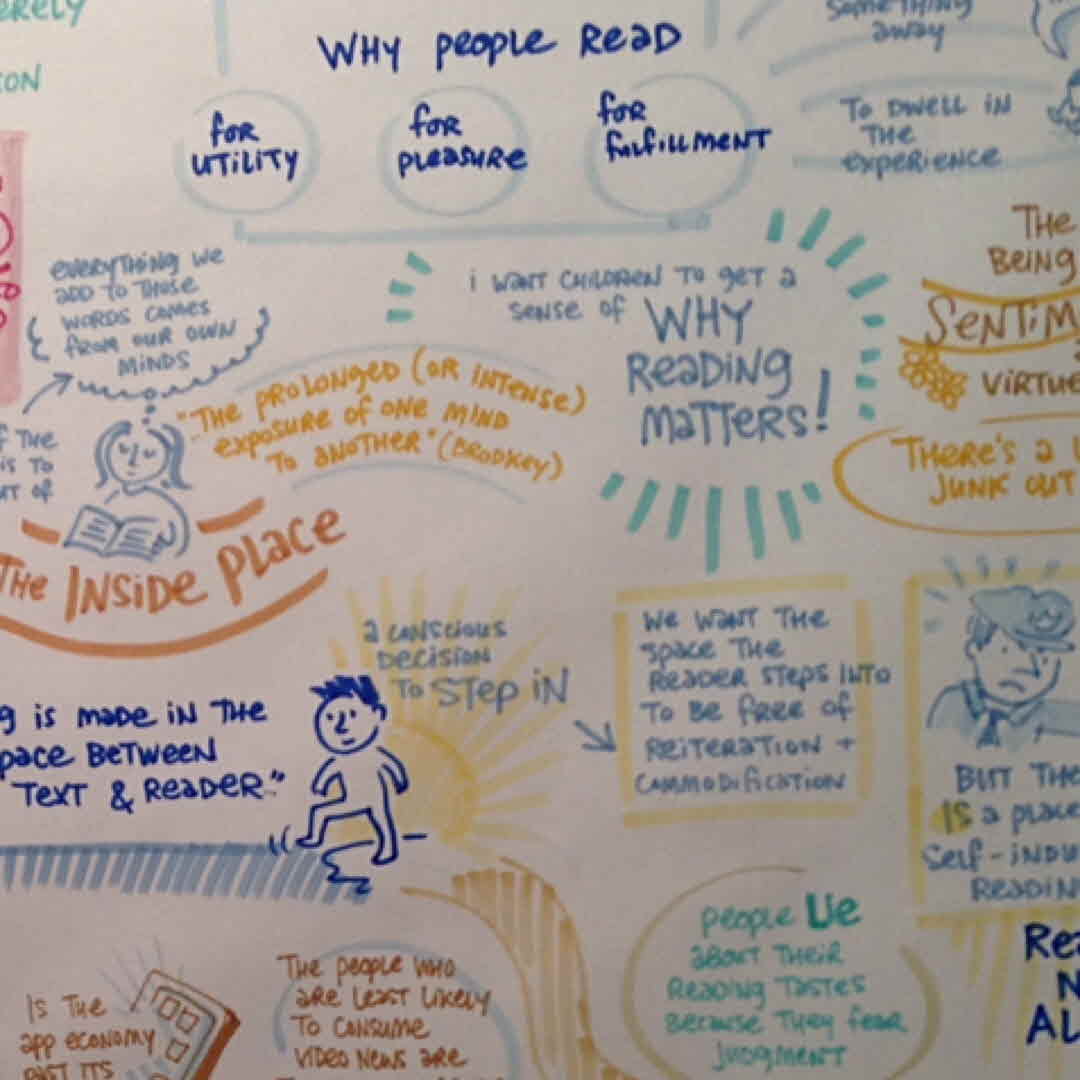 WHY PEOPLE READ
for UTILITY
for PLEASURE
for fulfillment
SOMETHING
away
TO DWELL IN
THE
experience
EVERYTHING WE
ADD TO THOSE
WORDS COMES
FROM OUR OWN
MINDS
"THE PROLONGED (OR INTENSE)
EXPOSURE OF ONE MIND
TO ANOTHER" (BRODKEY)
i WANT CHILDREN TO GET A
SENSE OF WHY
READING
MATTERS!
THE
BEING
VIRTUE
THERE'S A
JUNK OUT
THE
IS TO
OF
THE INSIDE PLACE
A CONSCIOUS
DECISION
TO STEP IN
IS MADE IN THE
BETWEEN
TEXT & READER."
WE WANT THE
SPACE THE
READER STEPS INTO
TO BE FREE OF
REITERATION +
COMMODIFICATION
BUT THE
IS A PLACE
SELF-
PEOPLE LIE
ABOUT THEIR
READING TASTES
BECAUSE THEY FEAR
JUDGMENT
IS THE
APP ECONOMY
PAST ITS
THE PEOPLE WHO
ARE LEAST LIKELY
TO CONSUME
VIDEO NEWS ARE